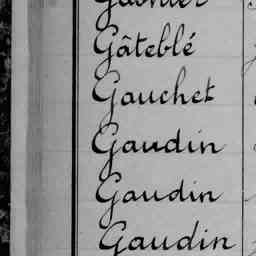 Gâteblé
Gauchet
Gaudin
Gaudin
Gaudin